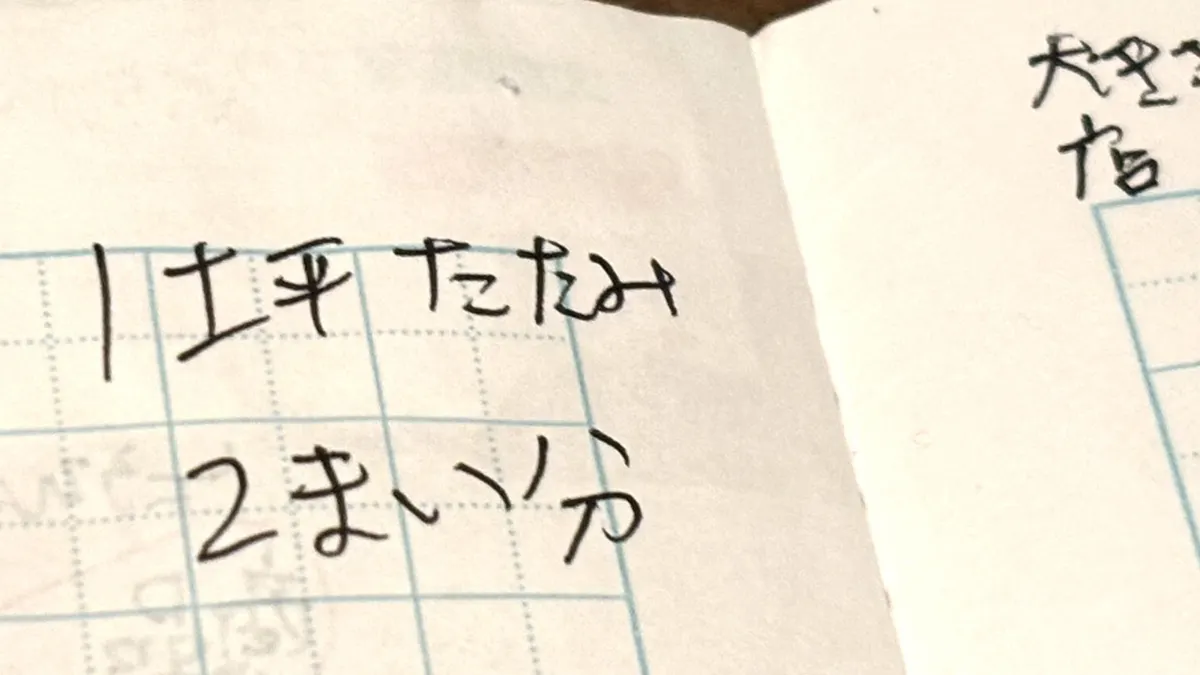 1坪たたみ
2まい分
大きさ
店